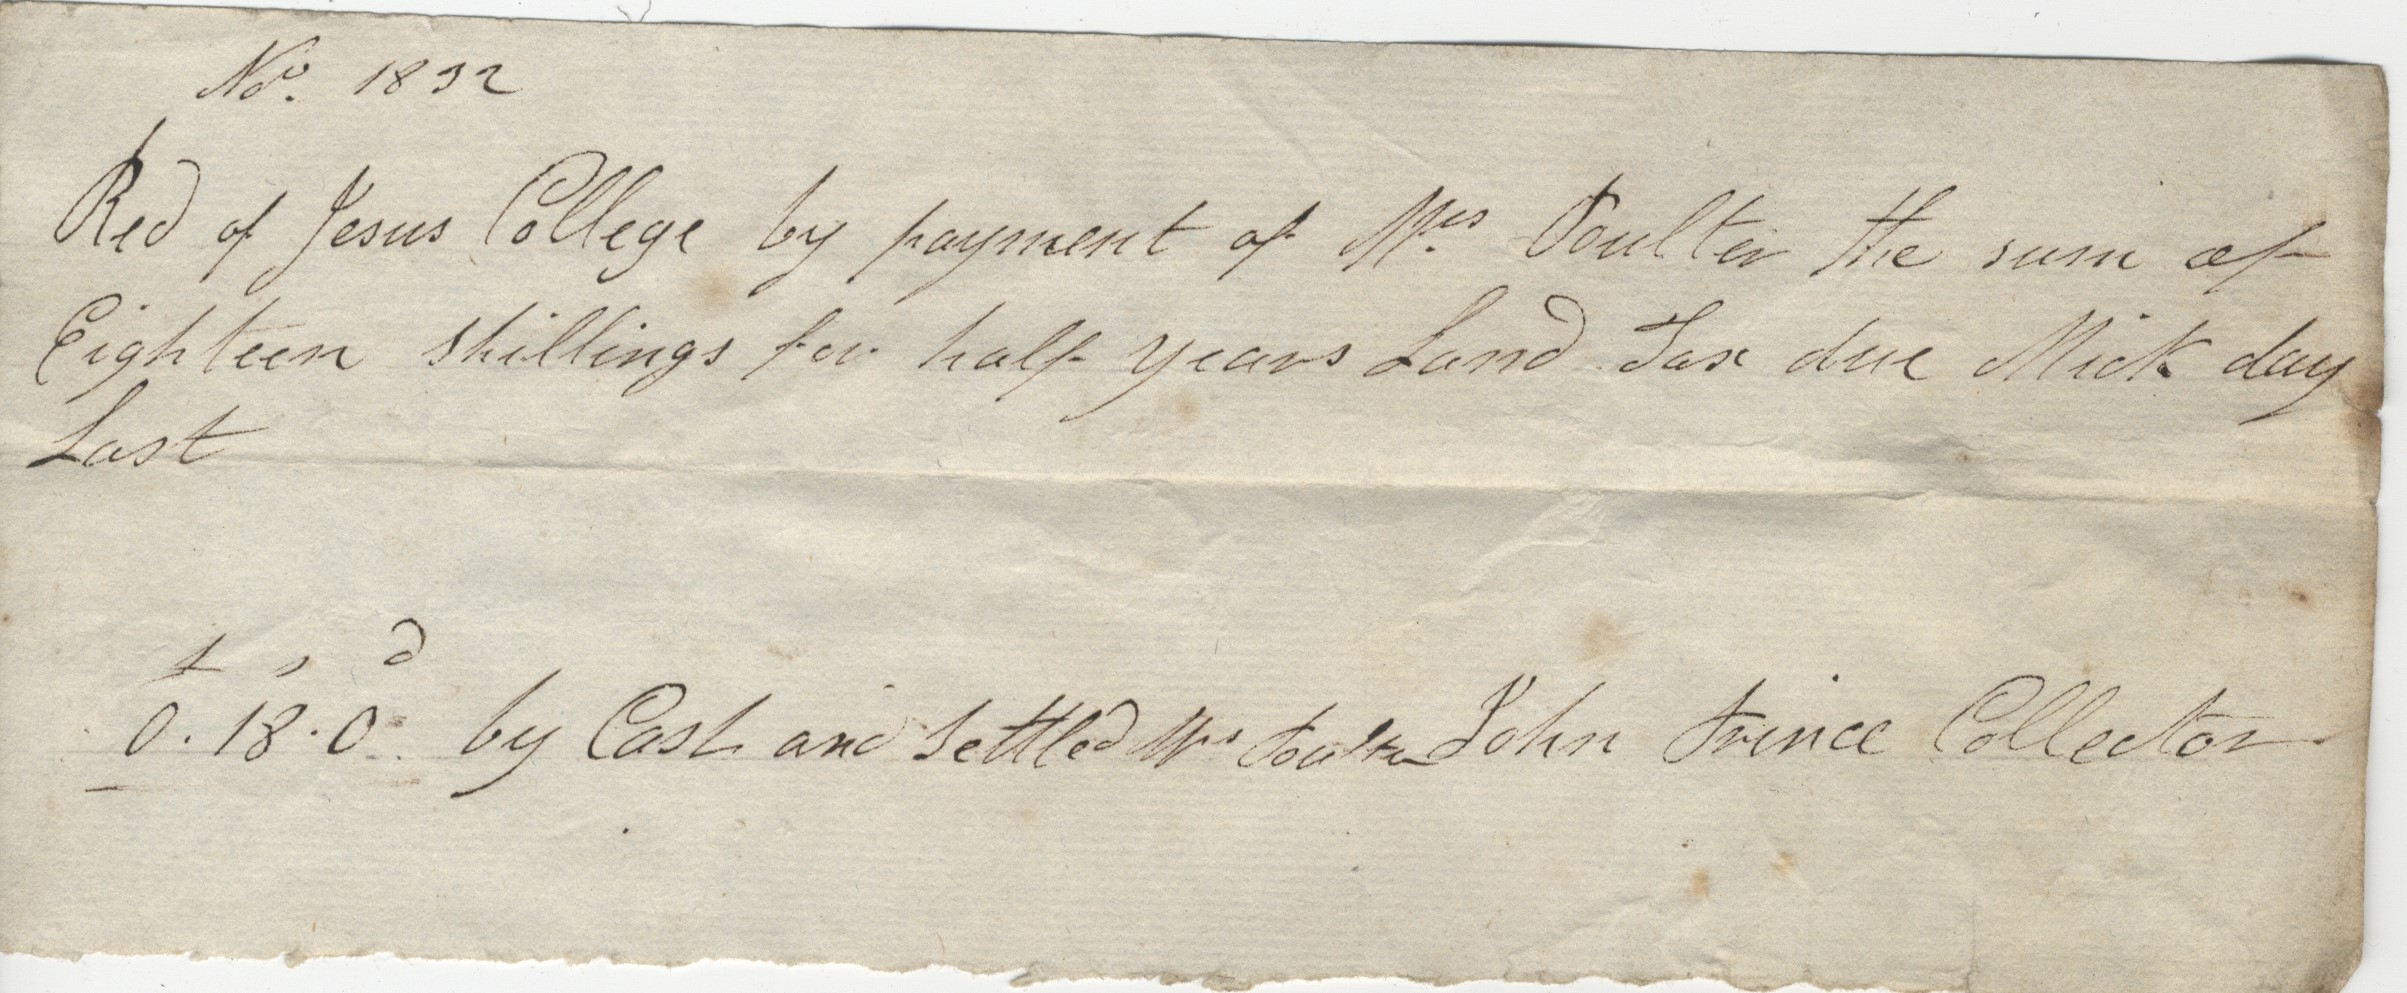 Nov. 1832
Recd of Jesus College by payment of Mrs Poulter the sum of
Eighteen shillings for half years Land Tax due Mick day
Last
£ s d
0. 18. 0 by Cash and Settled Mrs Poulter John Prince Collector